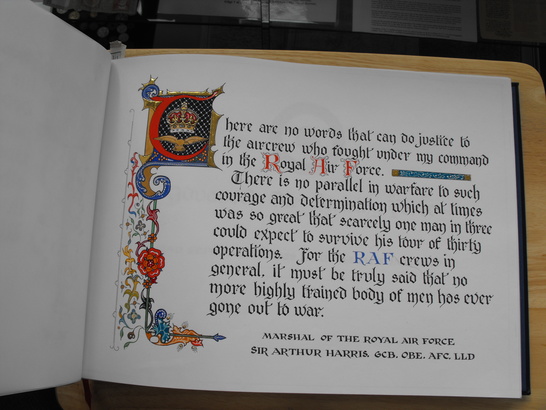 There are no words that can do justice to
the aircrew who fought under my command
in the Royal Air Force.
There is no parallel in warfare to such
courage and determination which at times
was so great that scarcely one man in three
could expect to survive his tour of thirty
operations. For the RAF crews in
general, it must be truly said that no
more highly trained body of men has ever
gone out to war.
MARSHAL OF THE ROYAL AIR FORCE
SIR ARTHUR HARRIS. GCB. OBE. AFC. LLD